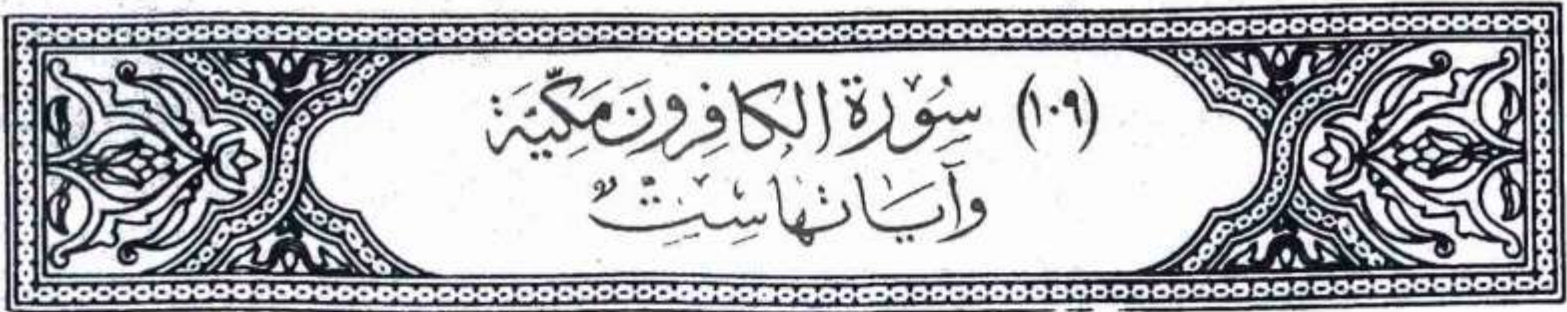 (١٠٩) سُوْرَة الكافِرونَ مَكِيّة
وَآيَاتها سِتٌّ